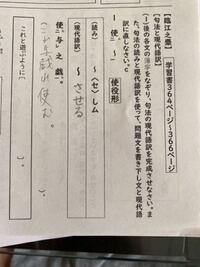 【臨江之麋】 学習書364ページ~366ページ
【句法と現代語訳】
(1)後の各文の漢字をなぞり、句法の現代語訳を完成させなさい。ま
た、句法の読みと現代語訳を使って、問題文を書き下し文と現代語
訳に直しなさい。
使役形
Ⅰ 使ニ〜一
(読み) 〜〈セ〉しム
(現代語訳) 〜 させる
使ニ与レ之戯一。
これと遊ぶように(
)。